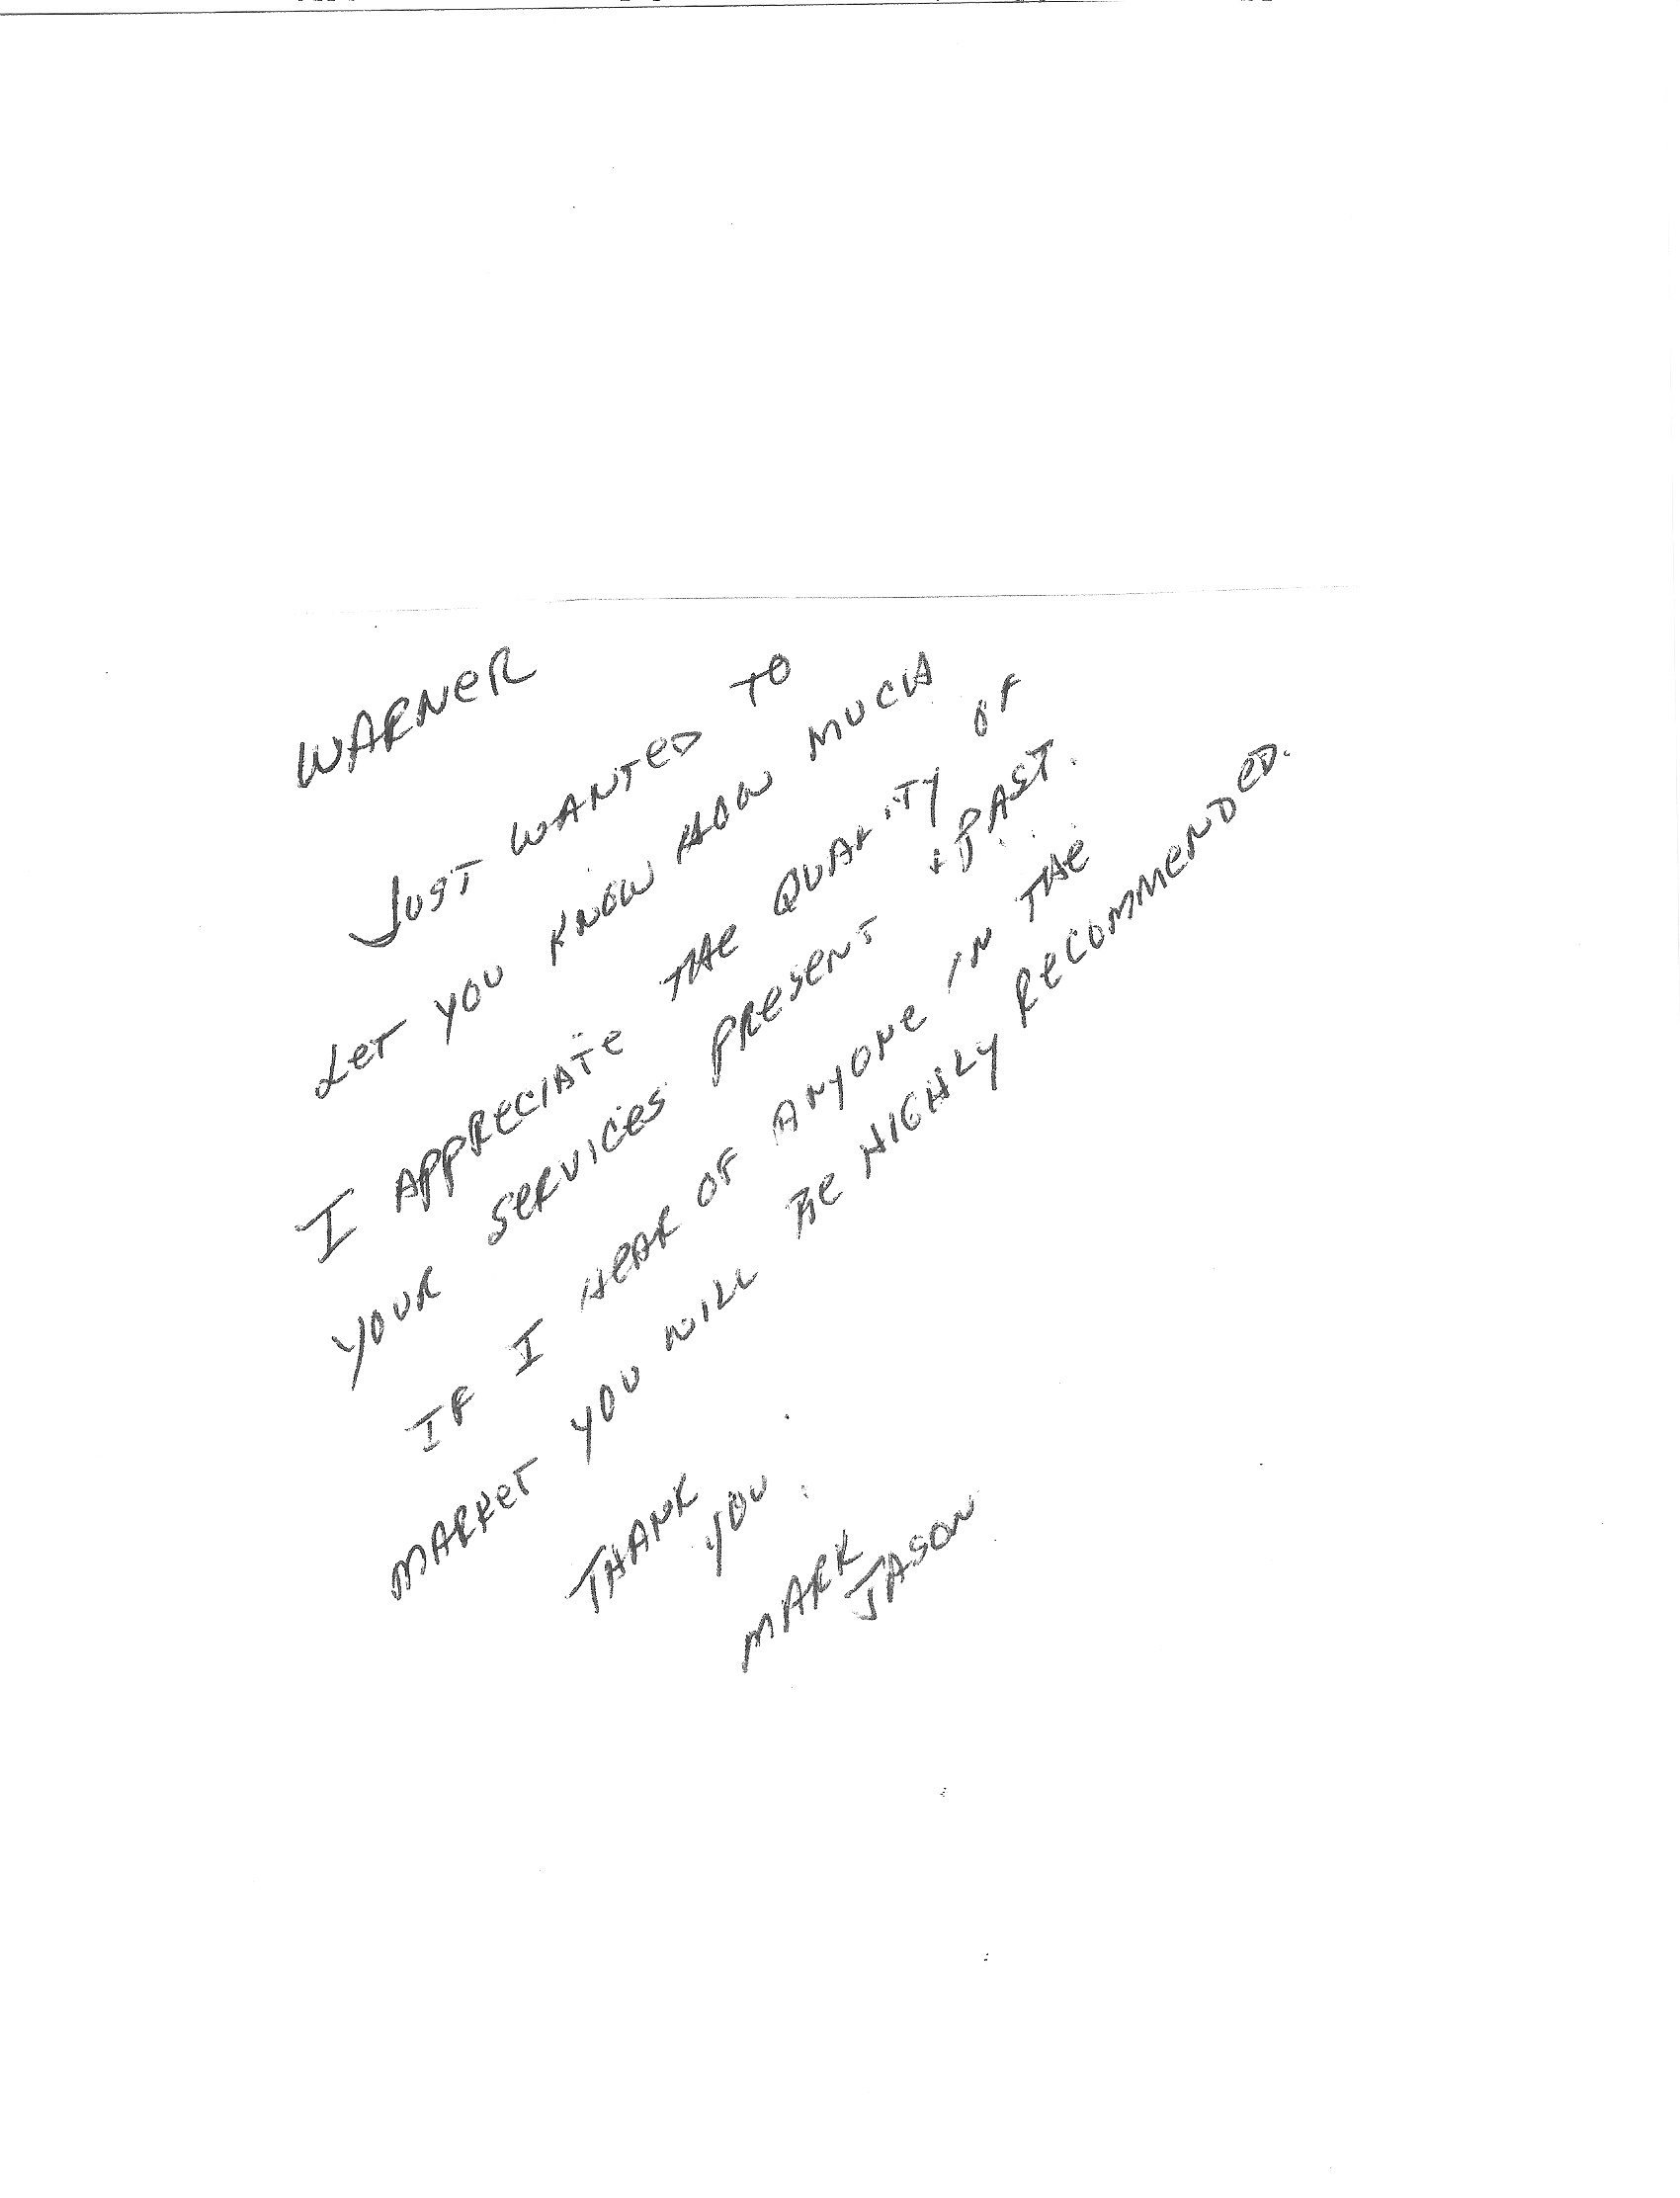 WARNER
JUST WANTED TO
LET YOU KNOW HOW MUCH
I APPRECIATE THE QUALITY OF
YOUR SERVICES PRESENT + PAST.
IF I HEAR OF ANYONE IN THE
MARKET YOU WILL BE HIGHLY RECOMMENDED.
THANK
YOU.
MARK
JASON